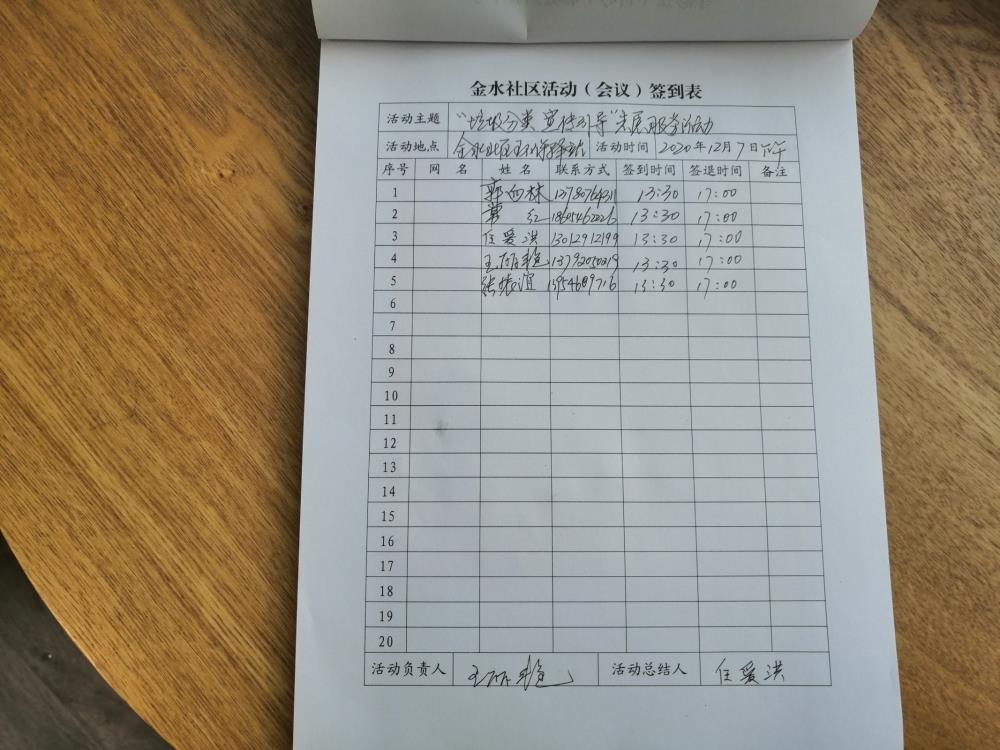 金水社区活动（会议）签到表
活动主题 “垃圾分类 宣传引导”志愿服务活动
活动地点 金水社区 活动时间 2020年12月7日下午
序号 网名 姓名 联系方式 签到时间 签退时间 备注
1 郭向林 13:30 17:00
2 常红 13:30 17:00
3 任爱洪 13012912199 13:30 17:00
4 王丽艳 13792050219 13:30 17:00
5 张振谊 13954689716 13:30 17:00
6
7
8
9
10
11
12
13
14
15
16
17
18
19
20
活动负责人 王丽艳 活动总结人 任爱洪